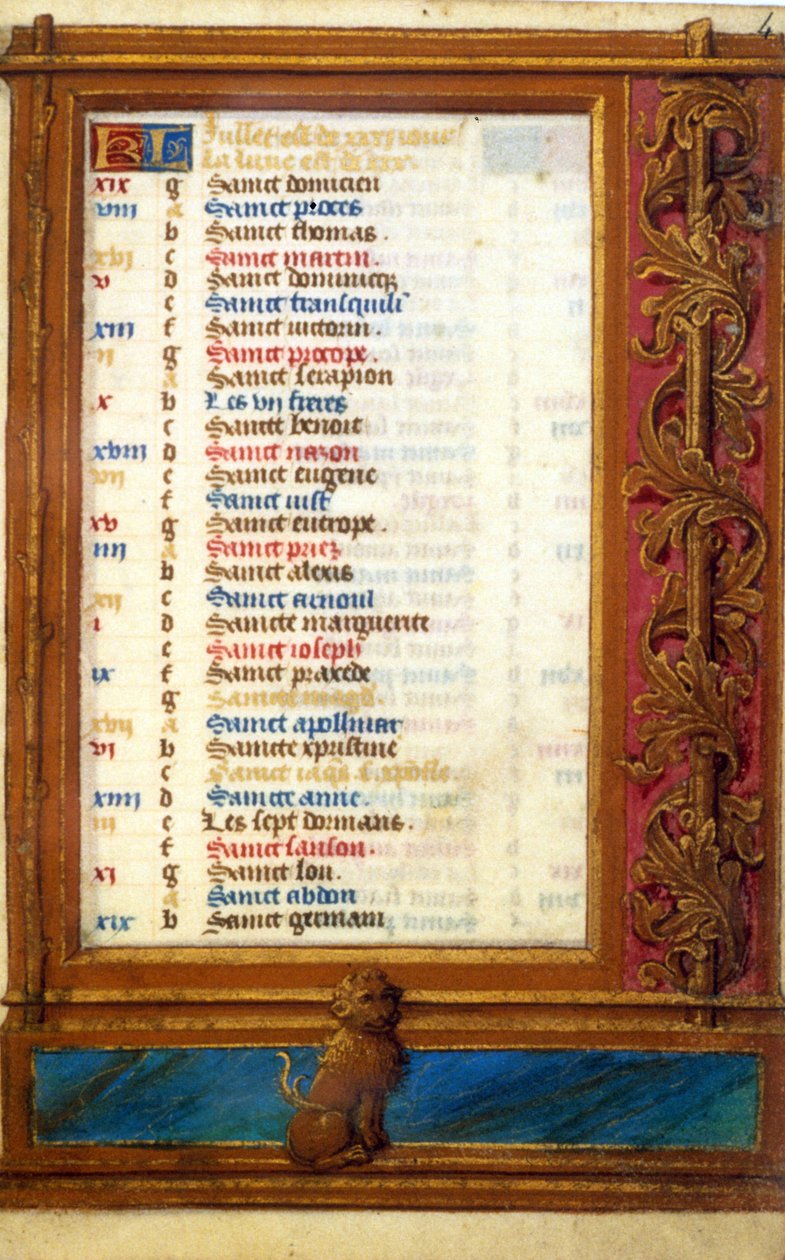 4
KL Juillet est de xxxi iours
La lune est de xxx.
xix g Sainct domicien
viii a Sainct proces
b Sainct thomas .
xvi c Sainct martin .
v d Sainct dominicq
e Sainct transquili
xiii f Sainct victorin .
ii g Sainct procope
a Sainct serapion
x b Les vij freres
c Saincte benoit
xviii d Sainct nazon
vii e Sainct eugene
f Sainct iust
xv g Sainct eutrope .
iiii a Sainct priez
b Sainct alexis
xii c Sainct arnoul
i d Saincte marguerite
e Sainct ioseph
ix f Sainct praxede
g Sainct magd.
xvii a Sainct apollinar
vi b Saincte xpristine
c Sainct iaqs . apostle .
xiiii d Saincte anne .
iii e Les sept dormans .
f Sainct sanson .
xi g Sainct lou .
a Sainct abdon
xix b Sainct germain